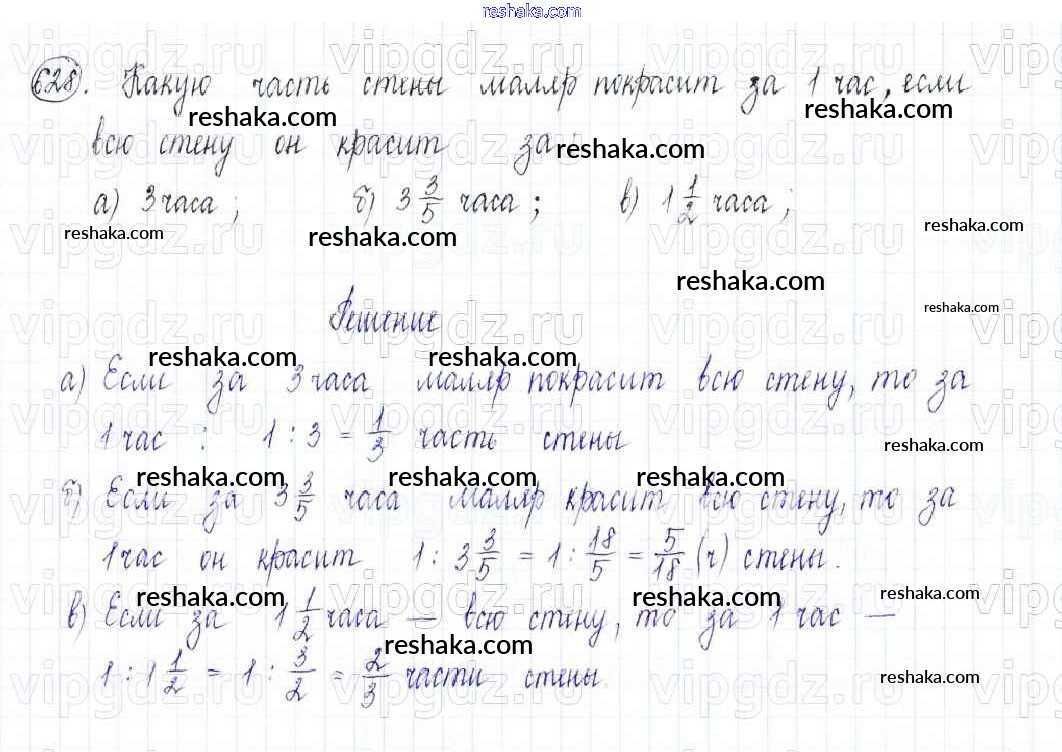 reshaka.com
628. Какую часть стены маляр покрасит за 1 час, если
reshaka.com reshaka.com
всю стену он красит за:
reshaka.com
а) 3 часа; б) 3 3/5 часа; в) 1 1/2 часа;
reshaka.com reshaka.com reshaka.com
reshaka.com
Решение
reshaka.com
reshaka.com reshaka.com
а) Если за 3 часа маляр покрасит всю стену, то за
1 час : 1 : 3 = 1/3 часть стены
reshaka.com
reshaka.com reshaka.com reshaka.com
б) Если за 3 3/5 часа маляр красит всю стену, то за
1 час он красит 1 : 3 3/5 = 1 : 18/5 = 5/18 (ч) стены.
reshaka.com reshaka.com reshaka.com
в) Если за 1 1/2 часа — всю стену, то за 1 час —
reshaka.com
1 : 1 1/2 = 1 : 3/2 = 2/3 части стены.
reshaka.com
vipgdz.ru